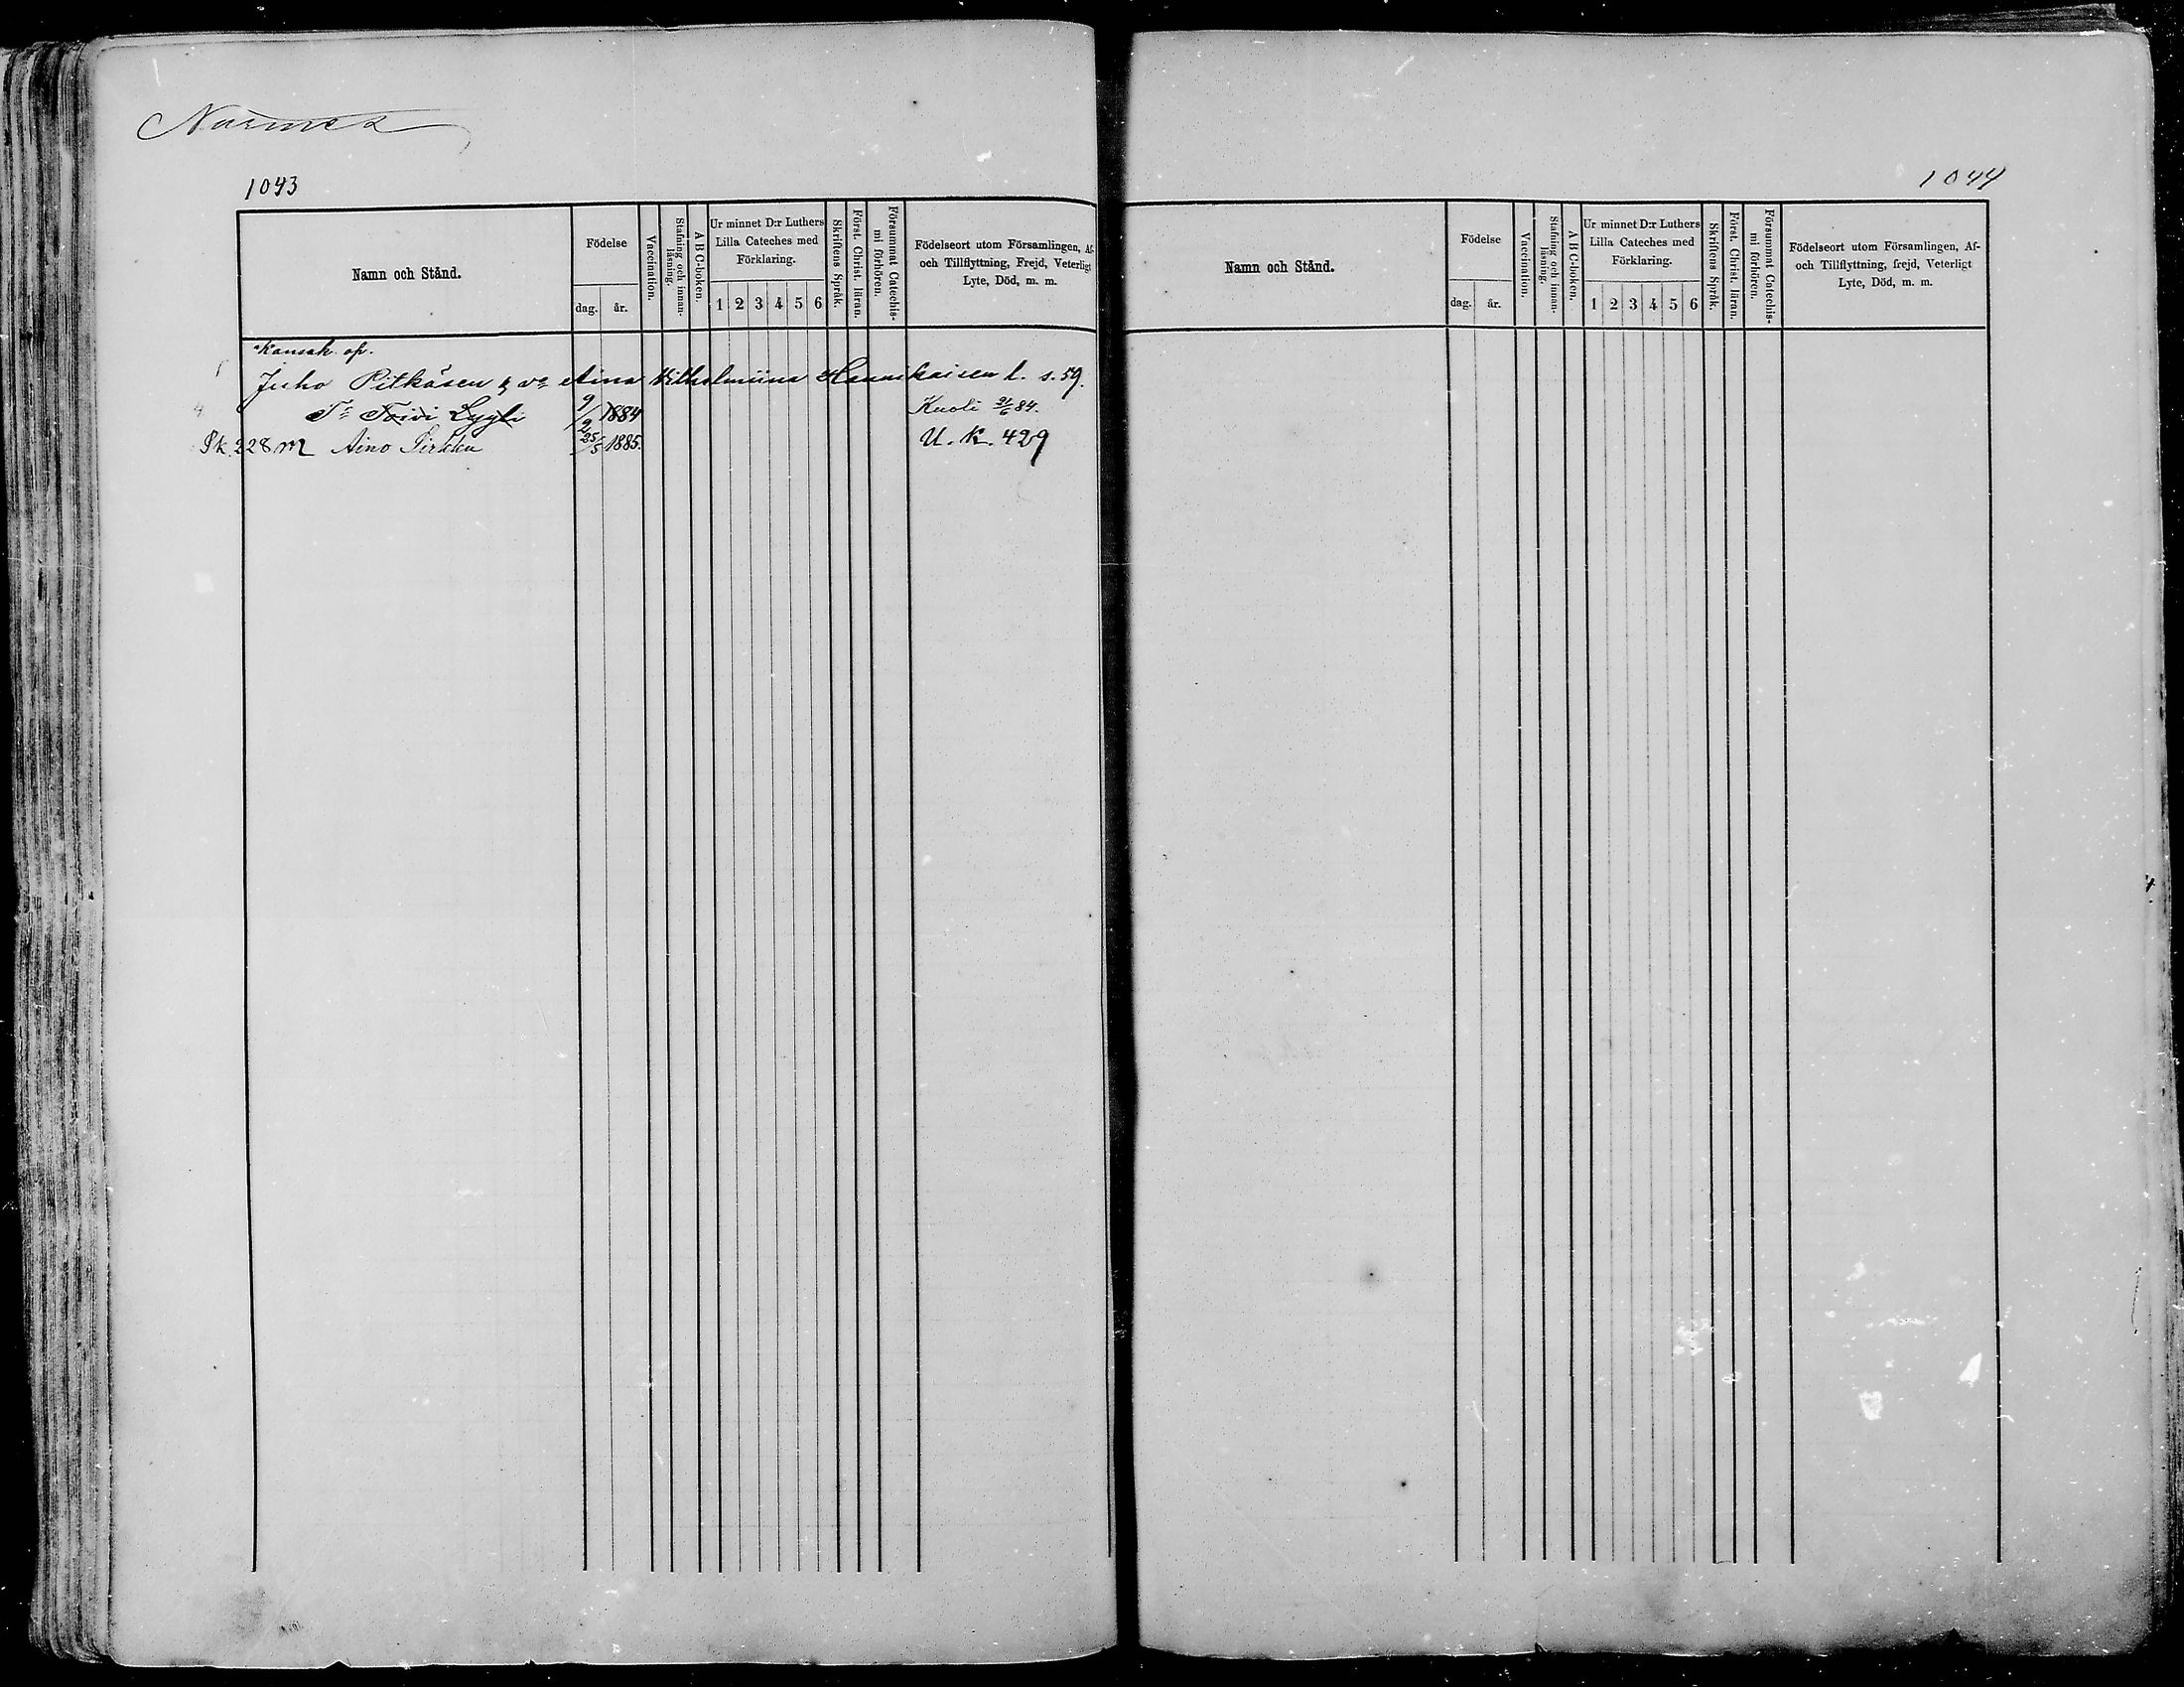 Nurmes
1043
Namn och Stånd.
Födelse
dag.
år.
Vaccination.
Stafning och innan-
läsning.
A B C-boken.
Ur minnet D:r Luthers
Lilla Cateches med
Förklaring.
1 2 3 4 5 6
Skriftens Språk.
Först. Christ. läran.
Försummat Catechis-
mi förhören.
Födelseort utom Församlingen, Af-
och Tillflyttning, Frejd, Veterligt
Lyte, Död, m. m.
Kansak. op.
Juho Pitkäsen & vo Aina Vilhelmiina Hannikaisen l. s. 59.
Tr Toivi Lyyli 9/2 1884 Kuoli 21/6 84.
Sk. 228 m Aino Sirkka 25/5 1885. U. K. 429
1044
Namn och Stånd.
Födelse
dag.
år.
Vaccination.
Stafning och innan-
läsning.
A B C-boken.
Ur minnet D:r Luthers
Lilla Cateches med
Förklaring.
1 2 3 4 5 6
Skriftens Språk.
Först. Christ. läran.
Försummat Catechis-
mi förhören.
Födelseort utom Församlingen, Af-
och Tillflyttning, frejd, Veterligt
Lyte, Död, m. m.